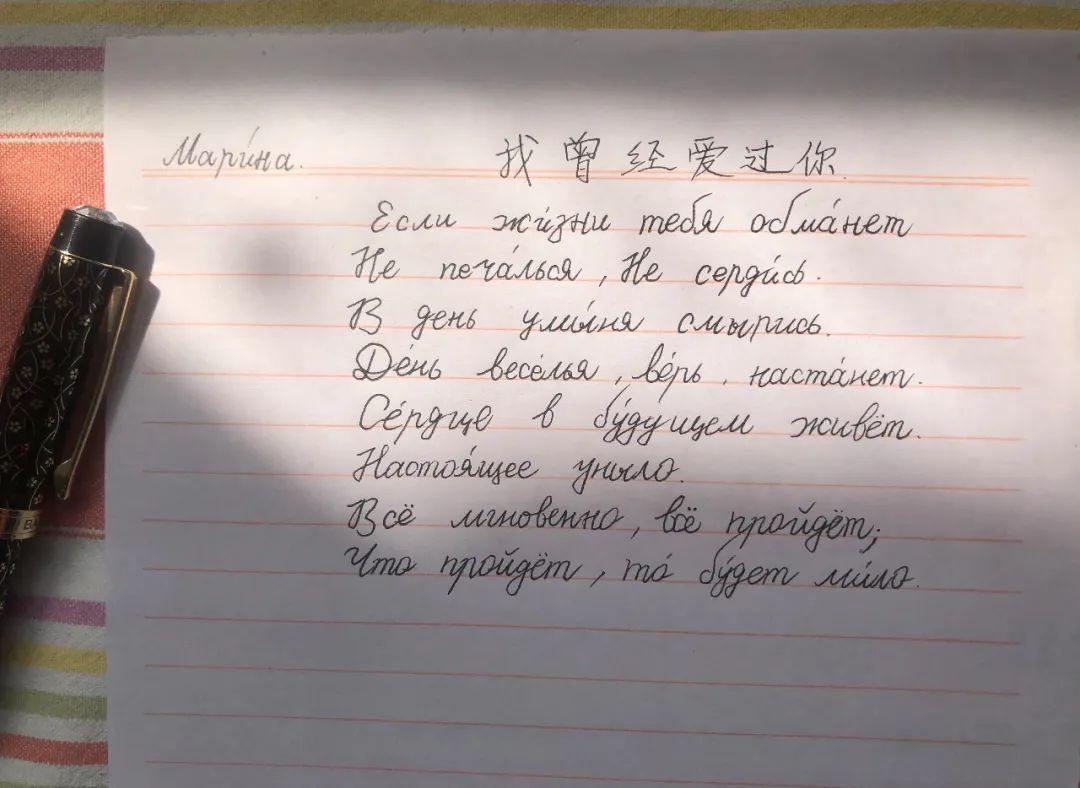 Мари́на.
我曾经爱过你
Если жи́зни тебя обма́нет
Не печа́лься, Не серди́сь.
В день улы́ня смырись.
Де́нь весе́лья, ве́рь, наста́нет.
Се́рдце в бу́дущем живёт.
Настоя́щее уныло.
Всё мгновенно, всё про́йдёт;
Что пройдёт, то́ бу́дет ми́ло.